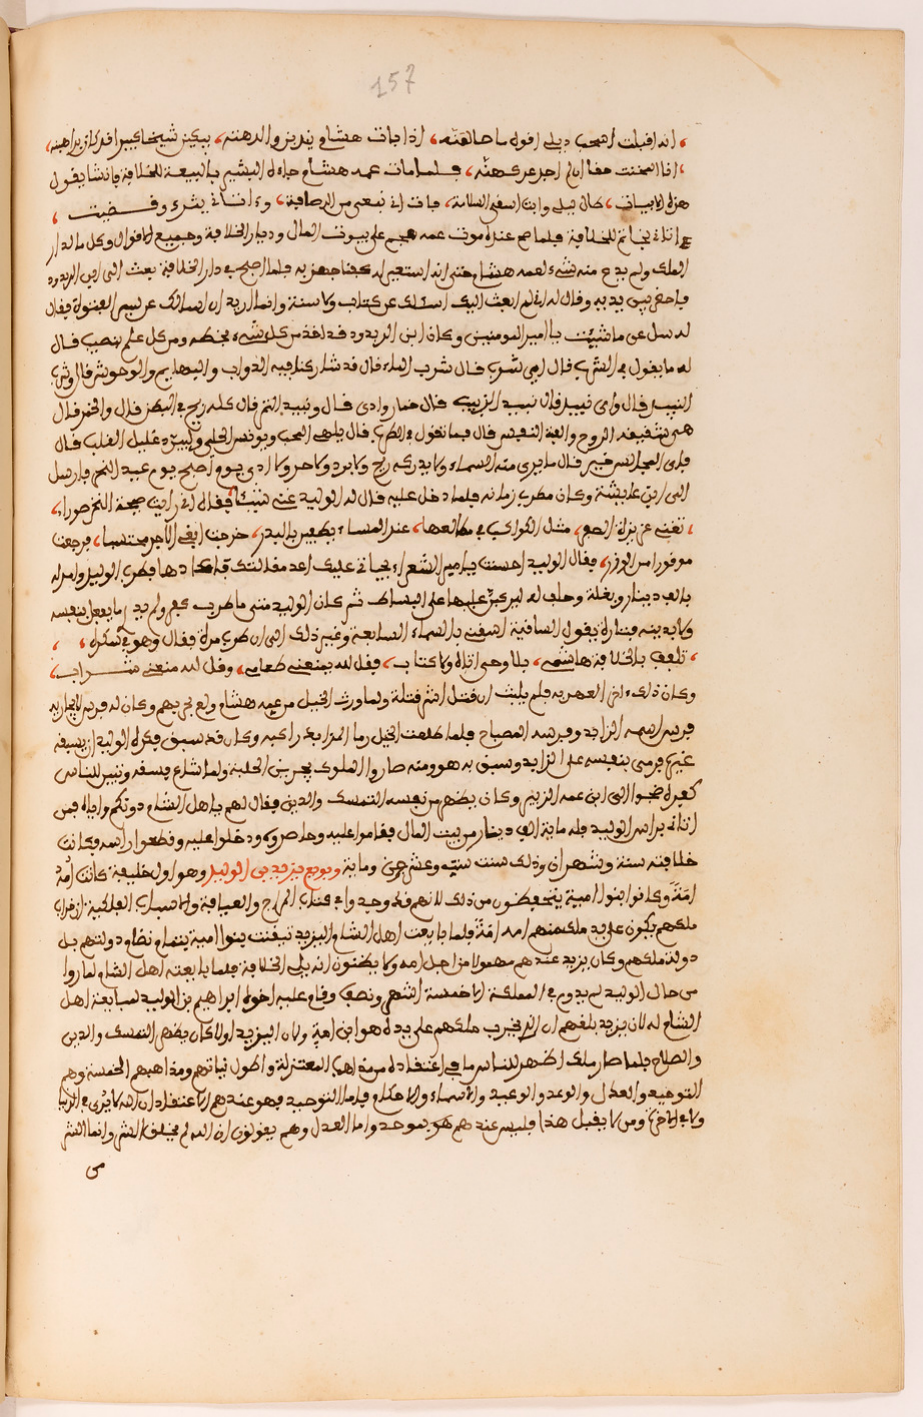 157
انه اقبلت اسحب ذيلى اقول ما حالهنه اذا بات هشام يندبن والدهنه يبكين شيخا كبيرا قد كان براهبنه
انا المخنث حقا ان لم احبل عركهنه فلما مات عمه هشام جاءه البشير بالبيعة للخلافة فانشا يقول
هذه الابيات طال ليلى وبت اسقى السلامه جاءنى نبعى من الرصافه وءاتانى ببشرى وقضيب
واتانى بخاتم للخلافة فلما صح عنده موت عمه هجم على بيوت المال وديار الخلافة وجميع الاموال وكل ما لدار
الملك ولم يدع منه شىء لعمه هشام حتى انه استعير له كفنا جهز به فلما اصبح في دار الخلافة بعث الى ابن الريدود
فاحضر بين يديه وقال له انى لم ابعث اليك اسئلك عن كتاب ولا سنة وانما اريد ان اسالك عن الفتوة فقال
له سل عن ما شئت يا امير المومنين وكان ابن الريدود قد اخذ من كل شىء بحظه ومن كل علم بنصيب قال
له ما يقول في الشرب قال اى شرب قال شرب الماء قال قد شاركنا فيه الدواب والبهايم والوحوش قال وشرب
النبيذ قال واى نبيذ قال نبيذ الزبيب قال خمار واذى قال ونبيذ التمر قال كله ريح في البطن قال والخمر قال
هى شقيقة الروح والفة النفس قال فما تقول في الطرب قال يلهى المحب ويونس الخلى ويبرد غليل القلب قال
فاى المجالس خير قال ما يرى منه السماء ولا يدركه ريح ولا برد ولا حر ولا اذى يوم اصبح يوم عيد النحر فارسل
الى ابن عايشة وكان مطرب زمانه فلما دخل عليه قال له الوليد غنى شيئا فقال له انى رايت صبحة النحر حوراء
تغنى عزيزة الصبر مثل الكواكب في مطالعها عند المساء يطفن بالبدر خرجت ابغى الاجر محتسبا فرجعت
موفورا من الوزر فقال الوليد احسنت يا امير الشعراء بحياتى عليك اعد مقالتك فاعادها فطرب الوليد وامر له
بالف دينار وبغلة وحلف له ليركبن عليها على البساط ثم كان الوليد متى ما طرب كفر ولم يدر ما يفعل بنفسه
ولا بدينه فتارة يقول للساقية اسقنى بالسماء السابعة وغير ذلك الى ان طرب مرة فقال وهو في سكره
تلعب بالخلافة هاشمى بلا وحى اتاه ولا كتاب فقل لله يمنعنى طعامى وقل لله يمنعنى شراب
وكان ذلك ءاخر العهد به فلم يلبث ان قتل اشر قتلة ولما ورث الخيل من عمه هشام ولع بجريهم وكان له فرس لا يجارى
فرس اسمه الزايد وفرسه المصباح فلما طلعت الخيل رما المزايد راكبه وكان قد سبق فكره الوليد ان يسبقه
غيره فرمى بنفسه على الزايد وسبق به هو ومنه صاروا الملوك يجرين الحلبة ولما شاع فسقه وتبين للناس
كفره ضجوا الى ابن عمه اليزيد وكان يظهر من نفسه التمسك والدين فقال لهم يا اهل الشام دونكم واياه فمن
اتانى براس الوليد فله ماية الف دينار من بيت المال فقاموا عليه وحاصروه ودخلوا عليه وقطعوا راسه فكانت
خلافته سنة وشهران وذلك سنة ست وعشرين وماية وبويع يزيد بن الوليد وهو اول خليفة كانت امه
امة وكانوا بنوا امية يتحفظون من ذلك لانهم قد وجدوا في كتاب الملاحم والعيافة والاسباب الفلكية ان خراب
ملكهم يكون على يد ملك منهم امه امة فلما بايعت اهل الشام اليزيد تيقنت بنوا امية بتمام نظام دولتهم بل
دولة ملكهم وكان يزيد عندهم مهمولا من اجل امه ولا يظنون انه يلى الخلافة فلما بايعته اهل الشام لما روا
من حال الوليد لم يدوم في المملكة الا خمسة اشهر ونصف وقام عليه اخوه ابراهيم بن الوليد لمبايعة اهل
الشام له لان يزيد بلغهم ان الذى يخرب ملكهم على يده هو ابن امة ولان اليزيد اولا كان يظهر التمسك والدين
والصلاح فلما صار ملك اظهر للناس ما في اعتقاده من مذاهب المعتزلة واصول ديانتهم ومذاهبهم الخمسة وهم
التوحيد والعدل والوعد والوعيد والاسماء والاحكام فاما التوحيد فهو عندهم الاعتقاد ان الله لا يرى في الدنيا
ولا في الاخرة ومن لا يقبل هذا فليس عندهم هو بموحد واما العدل وهم يقولون ان الله لم يخلق الشر وانما الشر
من